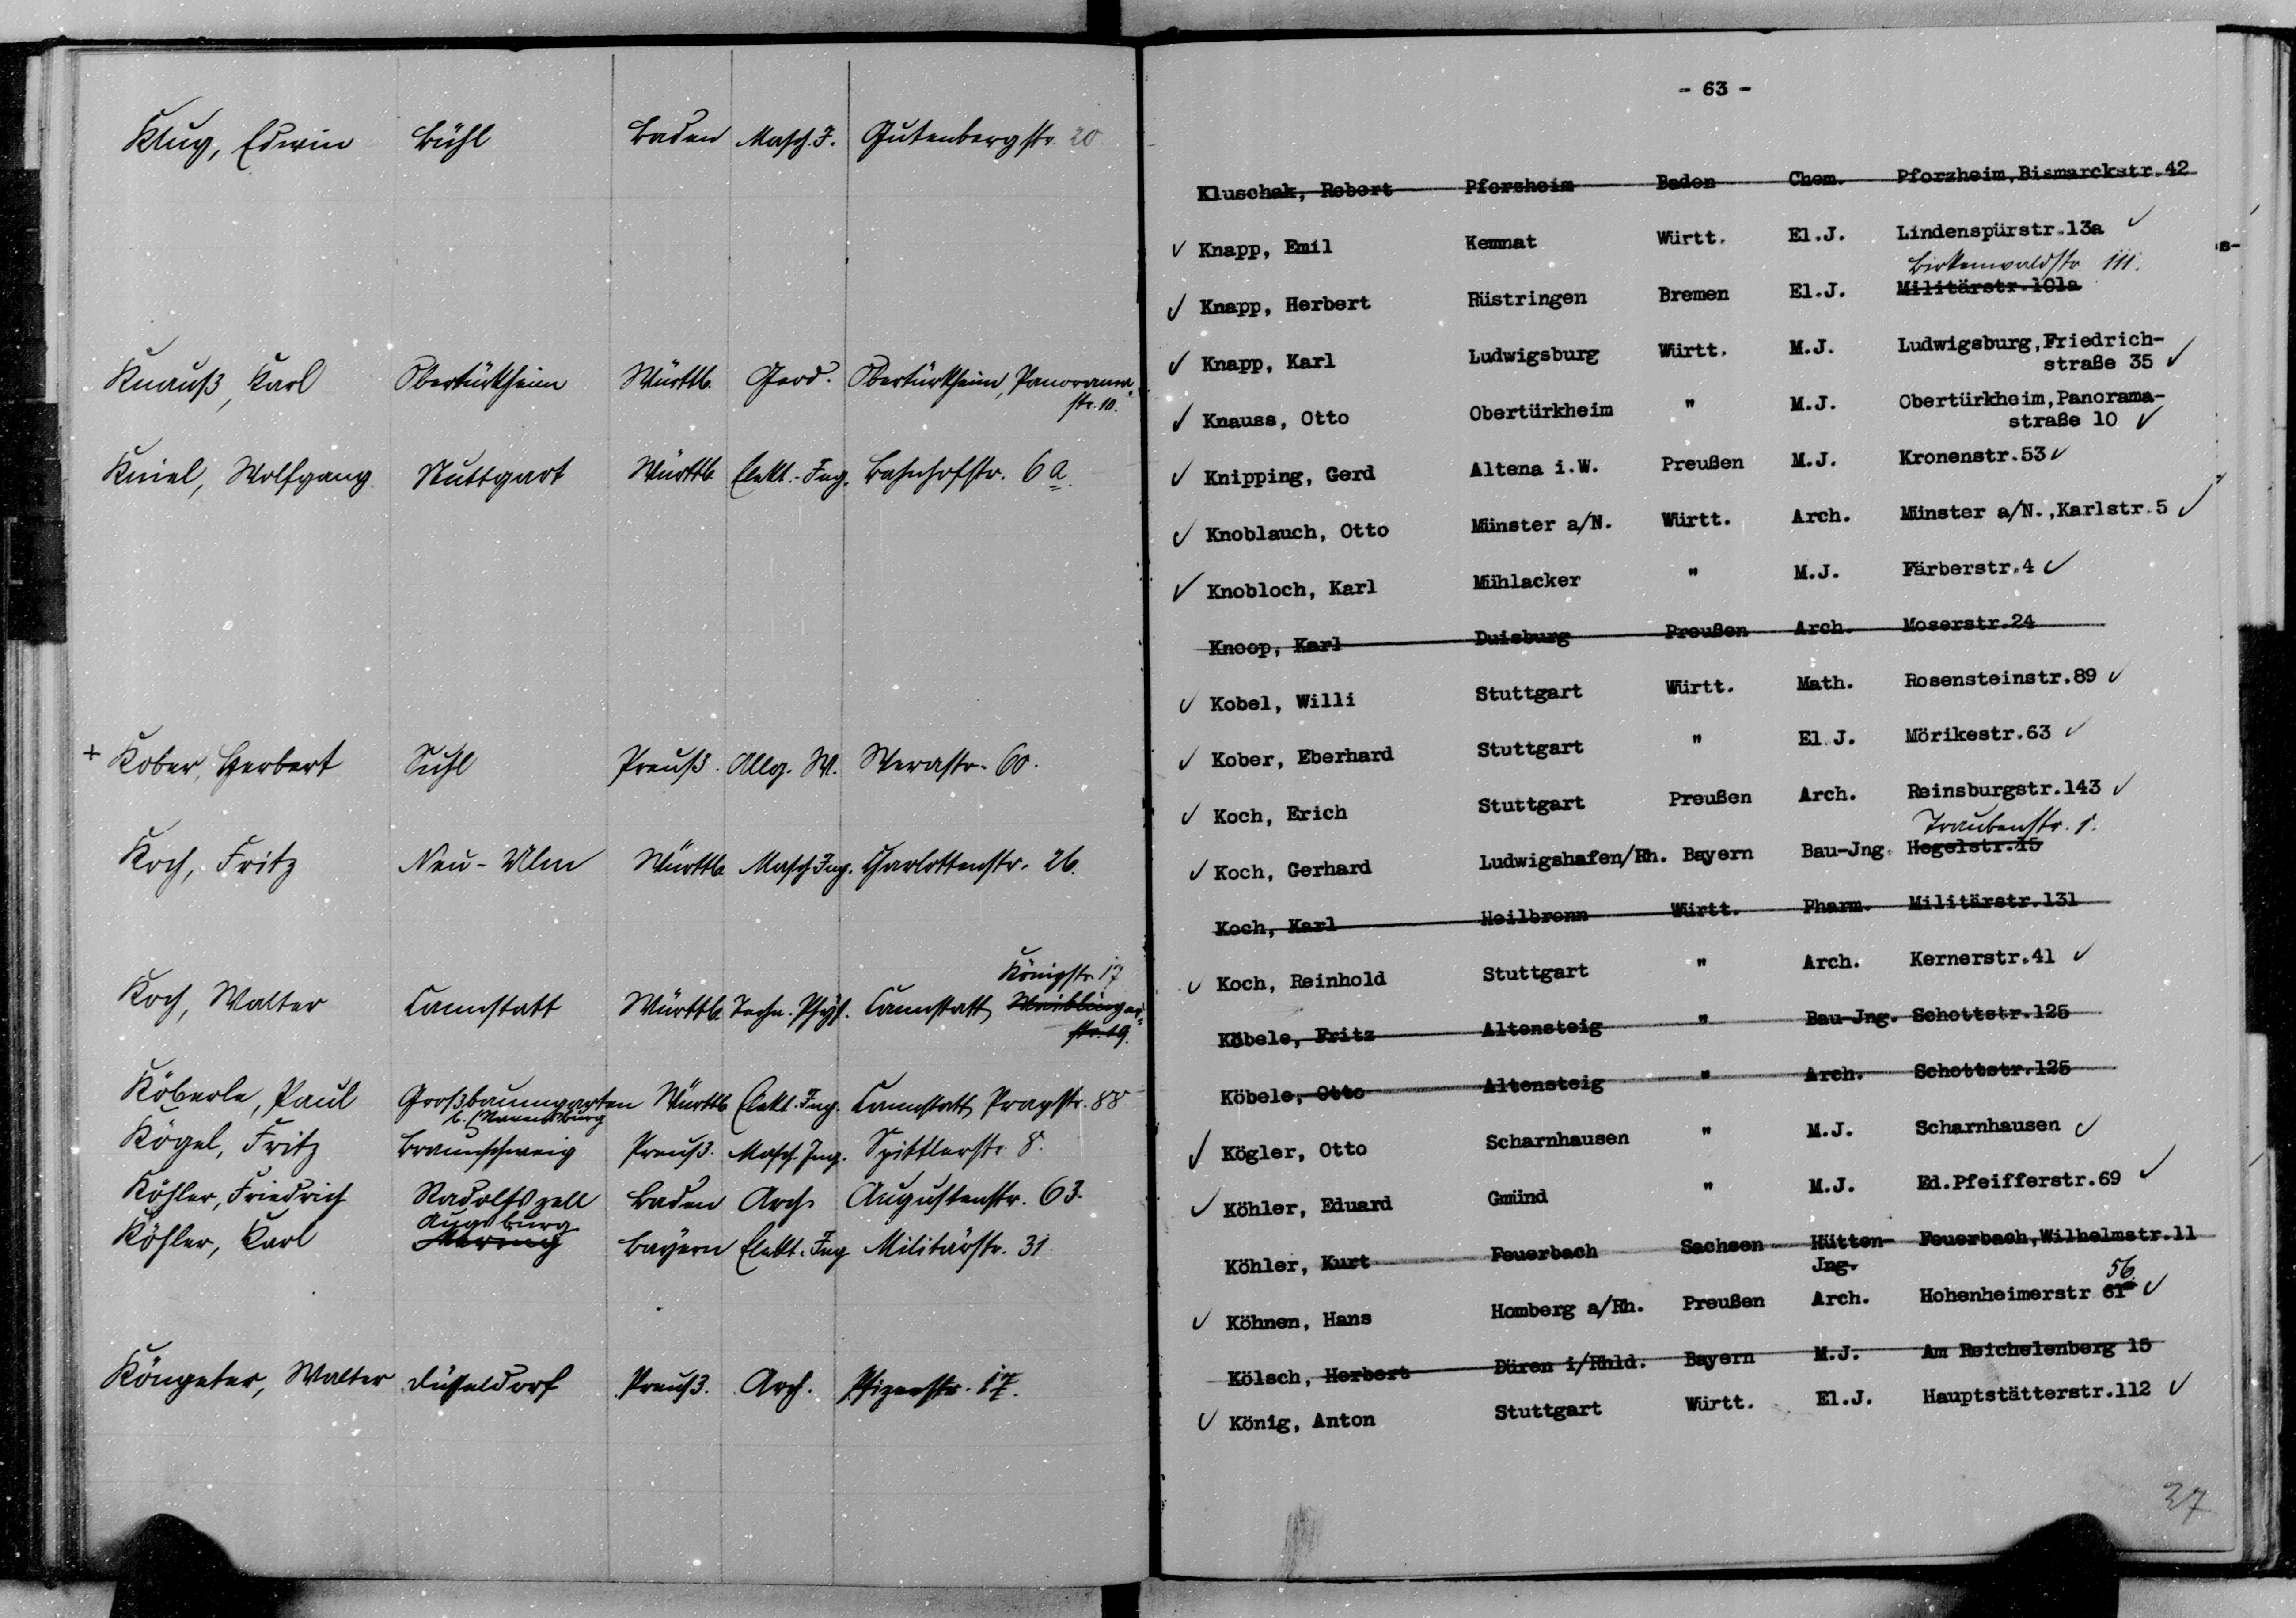 Klug, Edwin Bühl Baden Masch. J. Gutenbergstr. 20
Knauß, Karl Obertürkheim Württb. Geod. Obertürkheim, Panorama-
str. 10.
Kniel, Wolfgang Stuttgart Württb. Elekt.-Ing. Bahnhofstr. 6a.
+ Kober, Herbert Suhl Preuß. Allg. W. Werastr. 60.
Koch, Fritz Neu-Ulm Württb. Masch. Ing. Charlottenstr. 26.
Königstr. 17
Koch, Walter Cannstatt Württb. Techn. Phys. Cannstatt Waiblinger-
str. 19.
Köberle, Paul Großbaumgarten Württb. Elekt. Ing. Cannstatt Pragstr. 88
b. Ravensburg
Kögel, Fritz Braunschweig Preuß. Masch. Ing. Spittlerstr. 8.
Köhler, Friedrich Radolfszell Baden Arch. Augustenstr. 63.
Augsburg
Köhler, Karl Bayern Elekt. Ing. Militärstr. 31.
Köngeter, Walter Düsseldorf Preuß. Arch. Pfizerstr. 17.
- 63 -
Kluschak, Robert Pforzheim Baden Chem. Pforzheim,Bismarckstr.42
✓ Knapp, Emil Kemnat Württ. El.J. Lindenspürstr.13a ✓
Birkenwaldstr. 111.
✓ Knapp, Herbert Rüstringen Bremen El.J. Militärstr.101a
✓ Knapp, Karl Ludwigsburg Württ. M.J. Ludwigsburg,Friedrich-
straße 35 ✓
✓ Knauss, Otto Obertürkheim " M.J. Obertürkheim,Panorama-
straße 10 ✓
✓ Knipping, Gerd Altena i.W. Preußen M.J. Kronenstr.53 ✓
✓ Knoblauch, Otto Münster a/N. Württ. Arch. Münster a/N.,Karlstr.5 ✓
✓ Knobloch, Karl Mühlacker " M.J. Färberstr.4 ✓
Knoop, Karl Duisburg Preußen Arch. Moserstr.24
✓ Kobel, Willi Stuttgart Württ. Math. Rosensteinstr.89 ✓
✓ Kober, Eberhard Stuttgart " El.J. Mörikestr.63 ✓
✓ Koch, Erich Stuttgart Preußen Arch. Reinsburgstr.143 ✓
Traubenstr. 1.
✓ Koch, Gerhard Ludwigshafen/Rh. Bayern Bau-Jng. Hegelstr.15
Koch, Karl Heilbronn Württ. Pharm. Militärstr.131
✓ Koch, Reinhold Stuttgart " Arch. Kernerstr.41 ✓
Köbele, Fritz Altensteig " Bau-Jng. Schottstr.125
Köbele, Otto Altensteig " Arch. Schottstr.125
✓ Kögler, Otto Scharnhausen " M.J. Scharnhausen ✓
✓ Köhler, Eduard Gmünd " M.J. Ed.Pfeifferstr.69 ✓
Köhler, Kurt Feuerbach Sachsen Hütten- Feuerbach,Wilhelmstr.11
Jng.
56.
✓ Köhnen, Hans Homberg a/Rh. Preußen Arch. Hohenheimerstr 61 ✓
Kölsch, Herbert Düren i/Rhld. Bayern M.J. Am Reichelenberg 15
✓ König, Anton Stuttgart Württ. El.J. Hauptstätterstr.112 ✓
37
s-